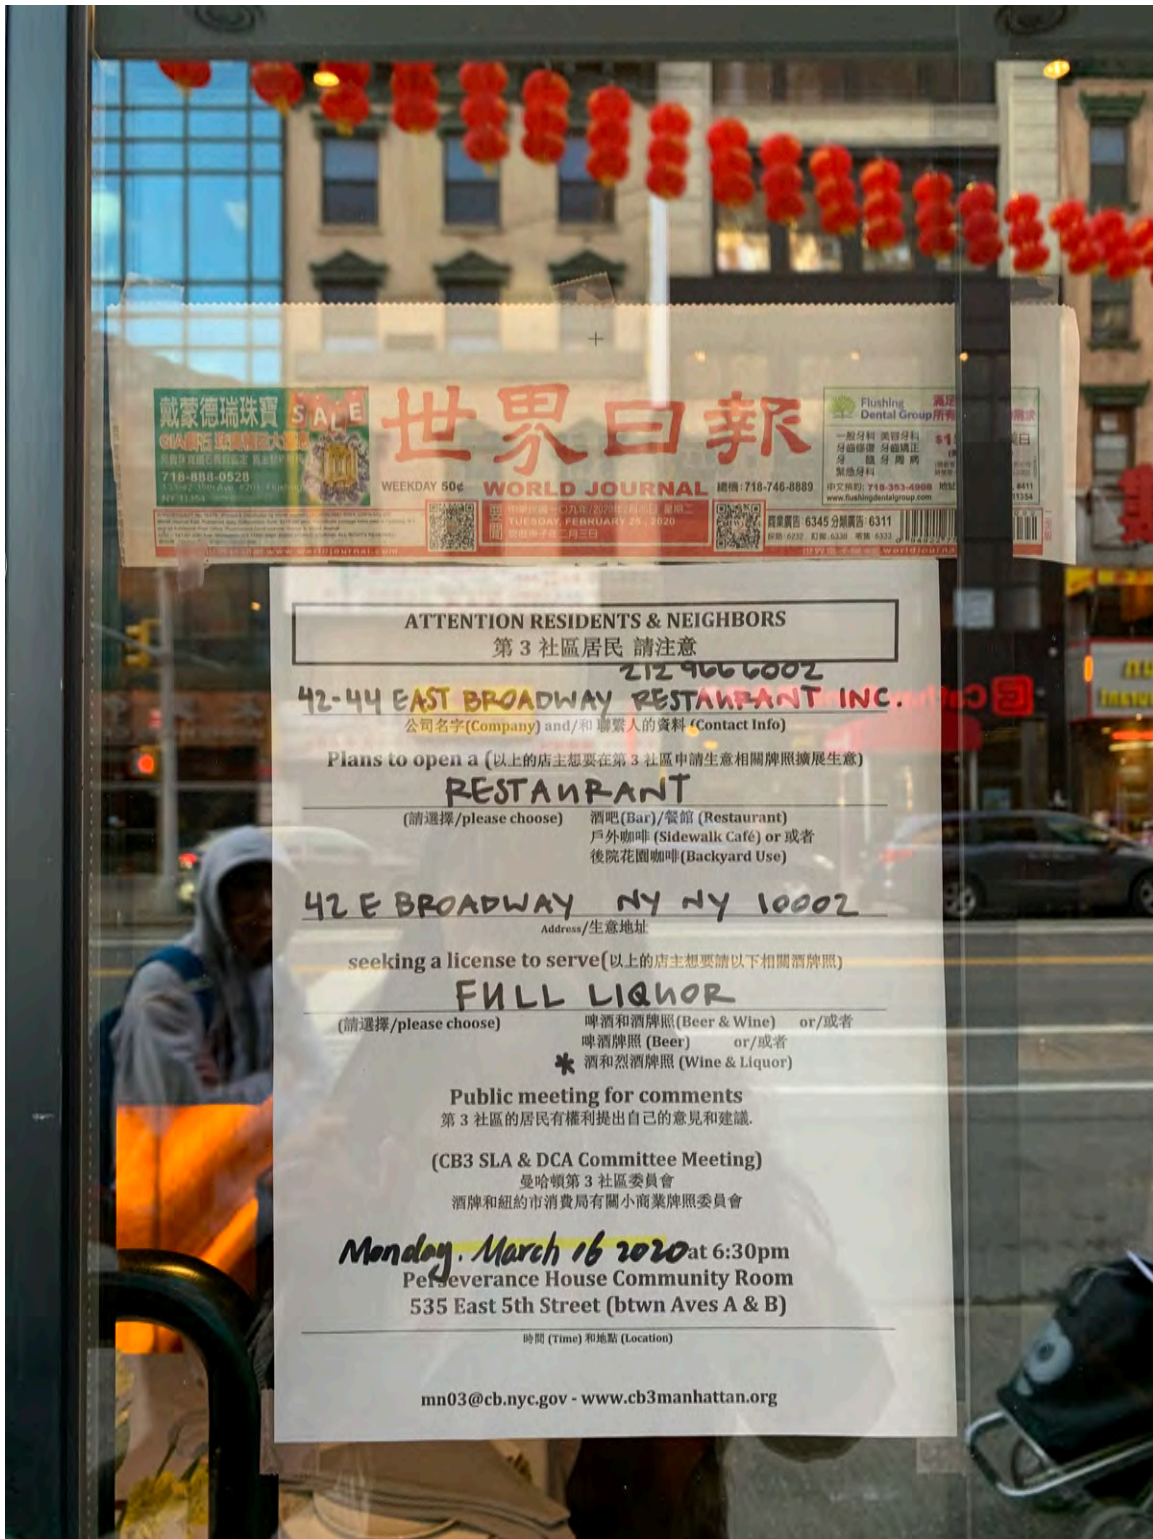 戴蒙德瑞珠寶 SALE
718-888-0528
NY 11354
世界日報
WEEKDAY 50¢ WORLD JOURNAL 總機:718-746-8889
要聞
中華民國一〇九年/2020年2月25日 星期二
TUESDAY, FEBRUARY 25, 2020
農曆庚子年二月三日
Flushing
Dental Group
一般牙科 美容牙科
牙齒修復 牙齒矯正
牙周病
緊急牙科
中文預約: 718-353-4968
www.flushingdentalgroup.com
商業廣告: 6345 分類廣告: 6311
採訪: 6232 訂報: 6338 零售: 6333
www.worldjournal.com
ATTENTION RESIDENTS & NEIGHBORS
第 3 社區居民 請注意
212 966 6002
42-44 EAST BROADWAY RESTAURANT INC.
公司名字(Company) and/和 聯繫人的資料 (Contact Info)
Plans to open a (以上的店主想要在第 3 社區申請生意相關牌照擴展生意)
RESTAURANT
(請選擇/please choose) 酒吧(Bar)/餐館 (Restaurant)
戶外咖啡 (Sidewalk Café) or 或者
後院花園咖啡(Backyard Use)
42 E BROADWAY NY NY 10002
Address/生意地址
seeking a license to serve(以上的店主想要請以下相關酒牌照)
FULL LIQUOR
(請選擇/please choose) 啤酒和酒牌照(Beer & Wine) or/或者
啤酒牌照 (Beer) or/或者
* 酒和烈酒牌照 (Wine & Liquor)
Public meeting for comments
第 3 社區的居民有權利提出自己的意見和建議.
(CB3 SLA & DCA Committee Meeting)
曼哈頓第 3 社區委員會
酒牌和紐約市消費局有關小商業牌照委員會
Monday. March 16 2020 at 6:30pm
Perseverance House Community Room
535 East 5th Street (btwn Aves A & B)
時間 (Time) 和地點 (Location)
mn03@cb.nyc.gov - www.cb3manhattan.org